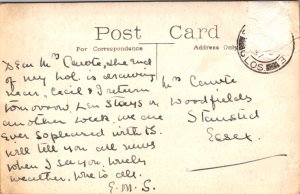 Post Card
For Correspondence
Address Only
GLOS
Dear Mrs the End
of my hol. is drawing
near, Cecil & I return
tomorrow, Len stays on
another week, we are
Ever so pleased with it.
will tell you all news
when I see you, lovely
weather. love to all.
E. M. S.
Mrs
Woodfields
Stansted
Essex.